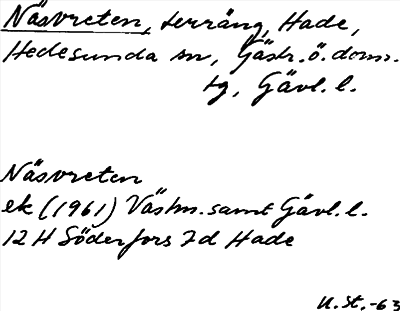 Näsvreten, terräng, Hade,
Hedesunda sn, Gästr. ö. doms.
tg, Gävl. l.
Näsvreten
ek (1961) Västm. samt Gävl. l.
12 H Söderfors 7d Hade
U. St. -63